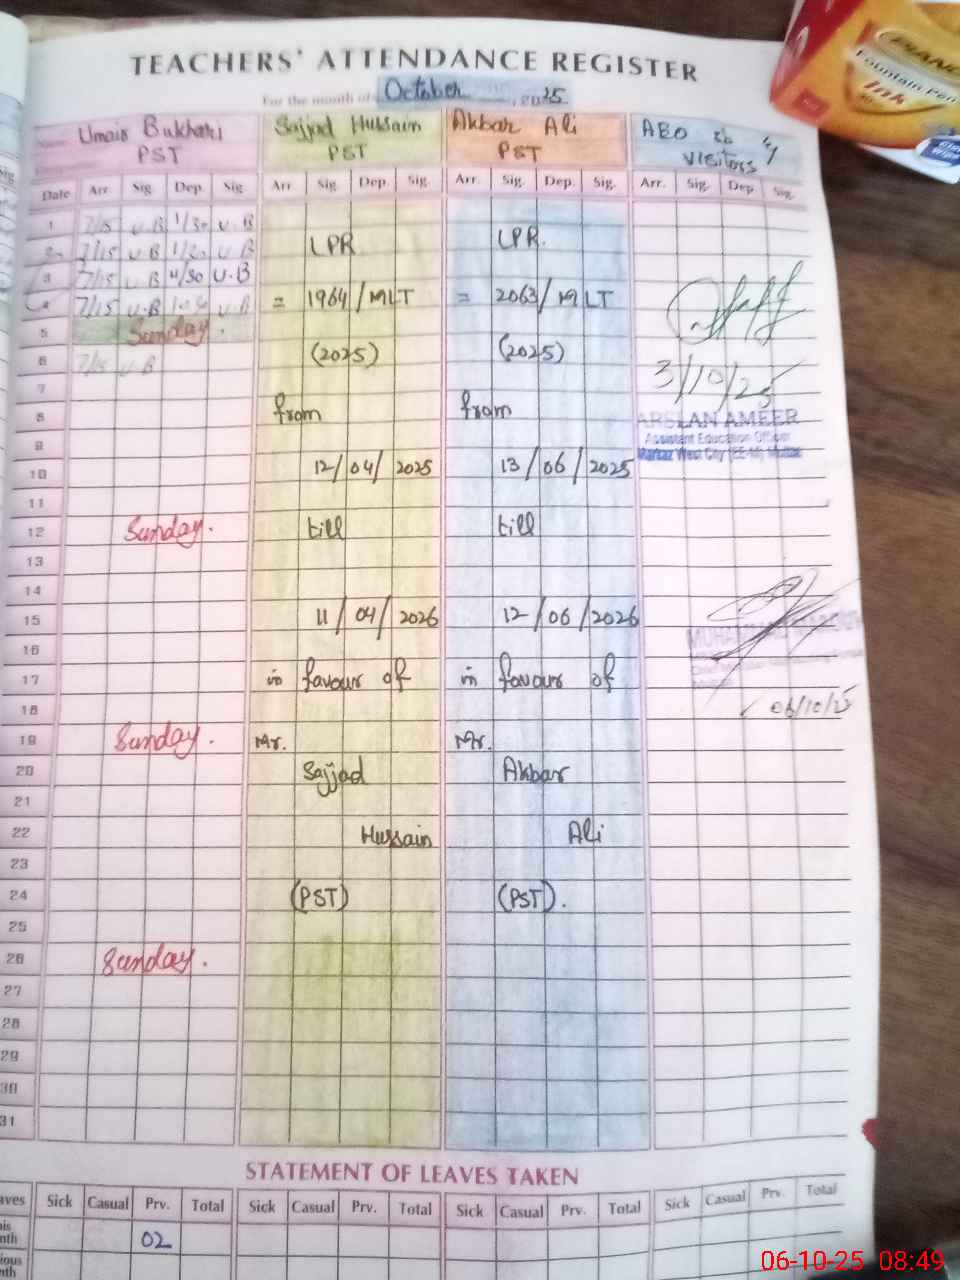 TEACHERS' ATTENDANCE REGISTER
For the month of October, 2025
Umair Bukhari
PST
Sajjad Hussain
PST
Akbar Ali
PST
AEO
Visitors
Date Arr. Sig. Dep. Sig. Arr. Sig. Dep. Sig. Arr. Sig. Dep. Sig. Arr. Sig. Dep Sig.
1 7/15 U.B 1/30 U.B
2 7/15 U.B 1/30 U.B LPR LPR.
3 7/15 U.B 11/30 U.B
4 7/15 U.B U.B = 1964/MLT = 2063/MLT
5 Sunday.
6 7/15 U.B (2025) (2025)
7 3/10/25
8 from from ARSLAN AMEER
9 Assistant Education Officer
10 12/04/2025 13/06/2025 Markaz West City (EE-M) Multan
11
12 Sunday. till till
13
14
15 11/04/2026 12/06/2026
16
17 in favour of in favour of
18 06/10/25
19 Sunday. Mr. Mr.
20 Sajjad Akbar
21
22 Hussain Ali
23
24 (PST) (PST).
25
26 Sunday.
27
28
29
30
31
STATEMENT OF LEAVES TAKEN
Sick Casual Prv. Total Sick Casual Prv. Total Sick Casual Prv. Total Sick Casual Prv. Total
02
PIANO
Fountain Pen
Ink
06-10-25 08:49